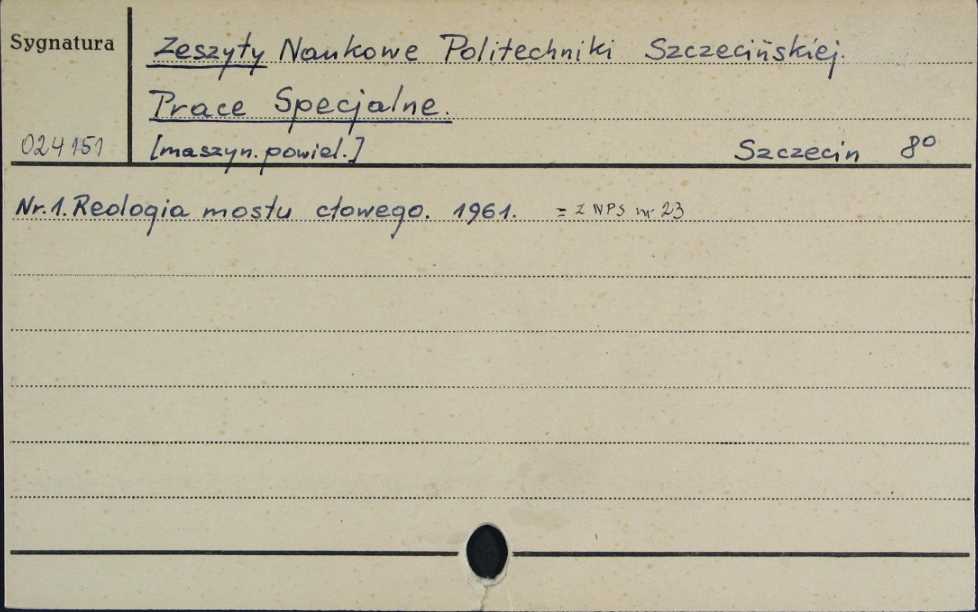 Sygnatura
Zeszyty Naukowe Politechniki Szczecińskiej.
Prace Specjalne.
024151 [maszyn. powiel.] Szczecin 8°
Nr. 1. Reologia mostu cłowego. 1961. = Z NPS nr 23